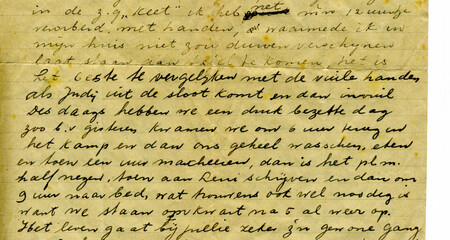 in de z.g. "Keet" ik heb met m'n 12 uurtje
verorberd, met handen, waarmede ik in
mijn huis niet zou durven verschijnen
laat staan aan tafel te komen, het is
het beste te vergelijken met de vuile handen
als Judy uit de sloot komt en dan
Des daags hebben we een druk bezette dag
zoo b.v. gisteren kwamen we om 6 uur terug in
het kamp en dan ons geheel wasschen, eten
en toen een uur marcheeren, dan is het pl.m.
half negen, toen aan Leni schrijven en dan om
9 uur naar bed, wat trouwens ook wel noodig is
want we staan op kwart na 5 al weer op.
Het leven gaat bij jullie zeker z'n gewone gang